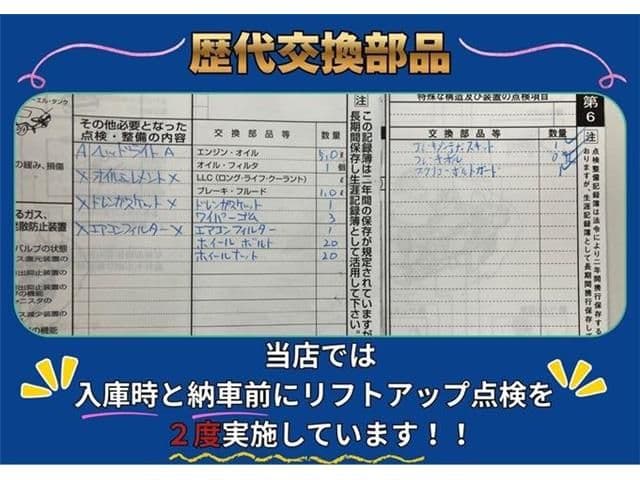 歴代交換部品
・エル・タンク
の緩み、損傷
るガス、
散防止装置
バルブの状態
ス還元装置
出抑止装置の
の機能
ニスタの
ス減少装置
の機能
その他必要となった
点検・整備の内容
A ヘッドライト A
X オイルエレメント X
X ドレンガスケット X
X エアコンフィルター X
交換部品等 数量
エンジン・オイル 5.0ℓ
オイル・フィルタ 1個
LLC(ロング・ライフ・クーラント) ℓ
ブレーキ・フルード 1.0ℓ
ドレンガスケット 1
ワイパーゴム 3
エアコンフィルター 1
ホイールボルト 20
ホイールナット 20
注
この記録簿は二年間の保存が規定されていますが
長期間保存し生涯記録簿として活用して下さい。
特殊な構造及び装置の点検項目
交換部品等 数量
第6
注
点検整備記録簿は法令により二年間携行保存する
おりますが、生涯記録簿として長期間携行保存し
当店では
入庫時と納車前にリフトアップ点検を
2度実施しています!!